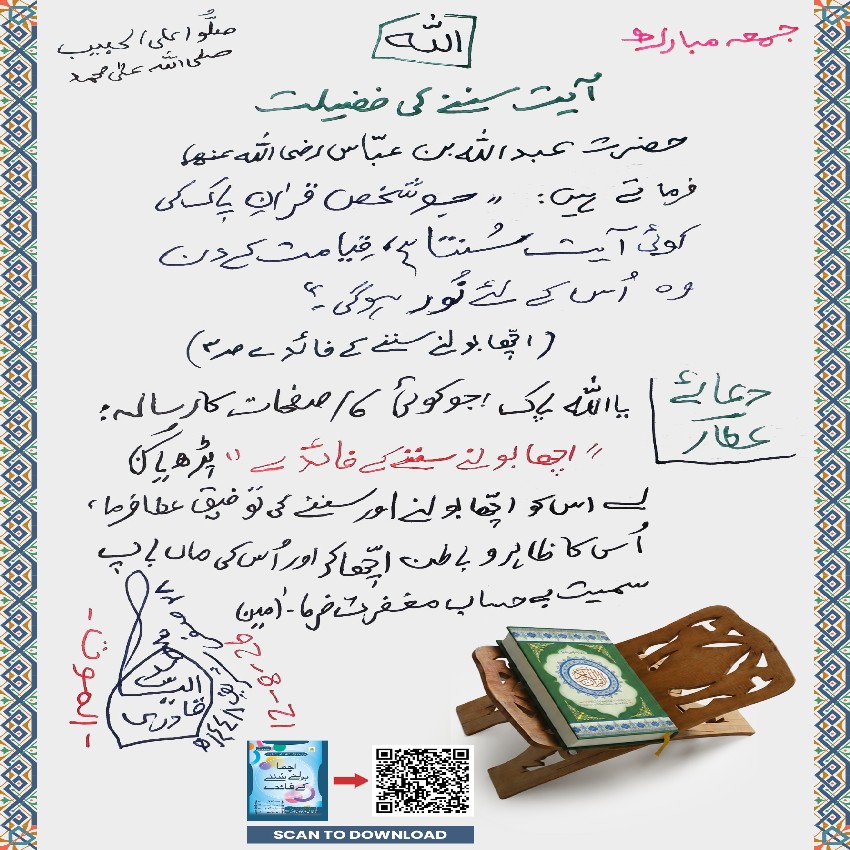 جمعہ مبارک
اللہ
صلُّوا علی الحبیب
صلی اللہ علیٰ محمد
آیت سننے کی فضیلت
حضرت عبد اللہ بن عبّاس رضی اللہ عنھما
فرماتے ہیں: "جو شخص قراٰنِ پاک کی
کوئی آیت سُنتا ہے، قِیامت کے دن
وہ اُس کے لئے نُور ہوگی"۔
(اچّھا بولنے سننے کے فائدے صـ۳)
دعائے
عطار
یا اللہ پاک! جو کوئی ۱۶ صفحات کا رسالہ:
"اچھا بولنے سننے کے فائدے" پڑھ یا سُن
لے اس کو اچّھا بولنے اور سننے کی توفیق عطا فرما،
اُس کا ظاہر و باطن اچّھا کر اور اُس کی ماں باپ
سمیت بے حساب مغفرت فرما۔ (اٰمین)
الموت
محمد
الیاس
قادری
۱۴۴۸ھ
12-8-26
اچھا
بولنے سننے
کے فائدے
SCAN TO DOWNLOAD